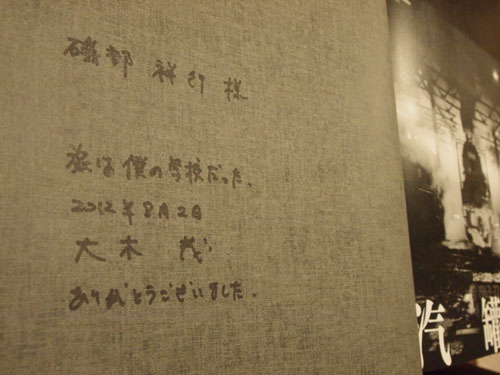 磯部 祥行 様
旅は僕の学校だった。
2012年8月2日
大木 茂
ありがとうございました。
汽罐